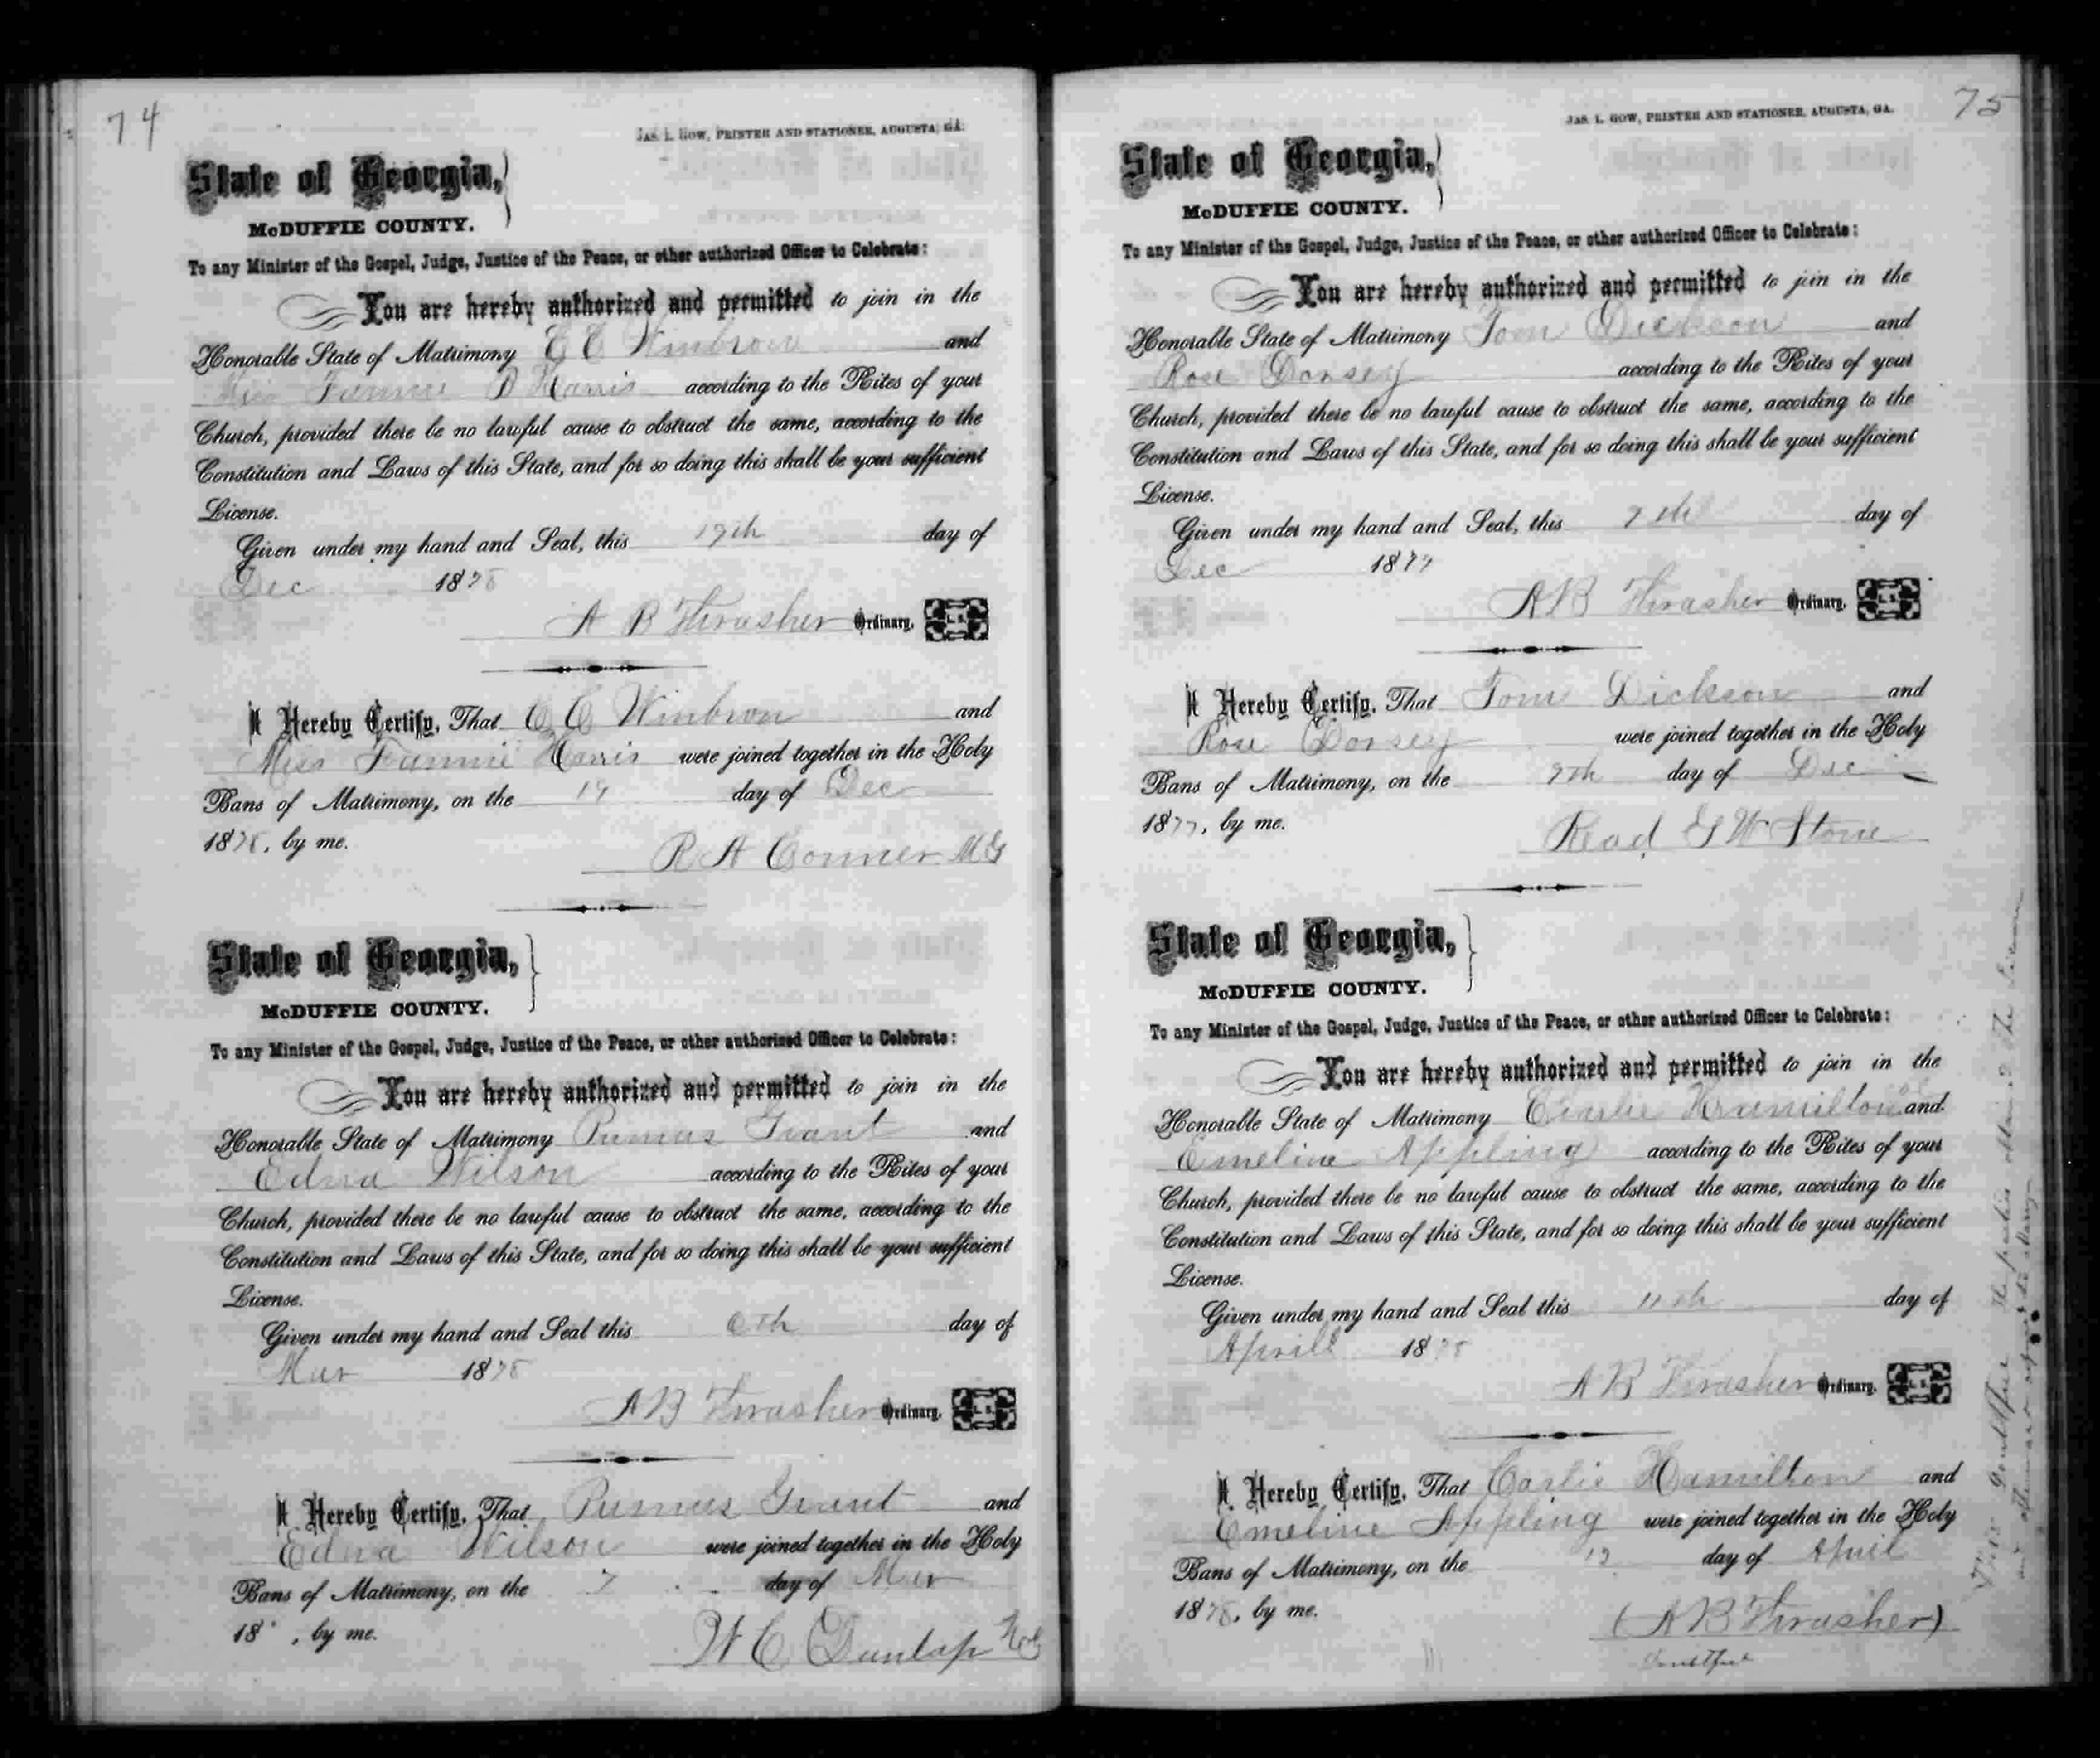 74
JAS. L. GOW, PRINTER AND STATIONER, AUGUSTA, GA.
State of Georgia,
McDUFFIE COUNTY.
To any Minister of the Gospel, Judge, Justice of the Peace, or other authorized Officer to Celebrate:
You are hereby authorized and permitted to join in the
Honorable State of Matrimony E C Winbrow and
Miss Fannie B Harris according to the Rites of your
Church, provided there be no lawful cause to obstruct the same, according to the
Constitution and Laws of this State, and for so doing this shall be your sufficient
License.
Given under my hand and Seal, this 17th day of
Dec 1878
A B Thrasher Ordinary, L. S.
I Hereby Certify, That Winbrow and
Miss Fannie Harris were joined together in the Holy
Bans of Matrimony, on the 19 day of Dec
1878, by me.
R A Conner M G
State of Georgia,
McDUFFIE COUNTY.
To any Minister of the Gospel, Judge, Justice of the Peace, or other authorized Officer to Celebrate:
You are hereby authorized and permitted to join in the
Honorable State of Matrimony Primus Grant and
Edna Wilson according to the Rites of your
Church, provided there be no lawful cause to obstruct the same, according to the
Constitution and Laws of this State, and for so doing this shall be your sufficient
License.
Given under my hand and Seal this 6th day of
Mar 1878
A B Thrasher Ordinary, L. S.
I Hereby Certify, That Primus Grant and
Edna Wilson were joined together in the Holy
Bans of Matrimony, on the 7 day of Mar
18 , by me.
W C Dunlap
75
JAS. L. GOW, PRINTER AND STATIONER, AUGUSTA, GA.
State of Georgia,
McDUFFIE COUNTY.
To any Minister of the Gospel, Judge, Justice of the Peace, or other authorized Officer to Celebrate:
You are hereby authorized and permitted to join in the
Honorable State of Matrimony Tom Dickson and
Rose Dorsey according to the Rites of your
Church, provided there be no lawful cause to obstruct the same, according to the
Constitution and Laws of this State, and for so doing this shall be your sufficient
License.
Given under my hand and Seal, this 7th day of
Dec 1877
A B Thrasher Ordinary, L. S.
I Hereby Certify, That Tom Dickson and
Rose Dorsey were joined together in the Holy
Bans of Matrimony, on the 9th day of Dec
1877, by me.
Read G W Stone
State of Georgia,
McDUFFIE COUNTY.
To any Minister of the Gospel, Judge, Justice of the Peace, or other authorized Officer to Celebrate:
You are hereby authorized and permitted to join in the
Honorable State of Matrimony Hamilton and
Emeline Appling according to the Rites of your
Church, provided there be no lawful cause to obstruct the same, according to the
Constitution and Laws of this State, and for so doing this shall be your sufficient
License.
Given under my hand and Seal this 11th day of
Aprill 1878
A B Thrasher Ordinary, L. S.
I Hereby Certify, That Carlie Hamilton and
Emeline Appling were joined together in the Holy
Bans of Matrimony, on the 12 day of April
1878, by me.
(A B Thrasher)
doubtful
This doubtful the parties obtained the license